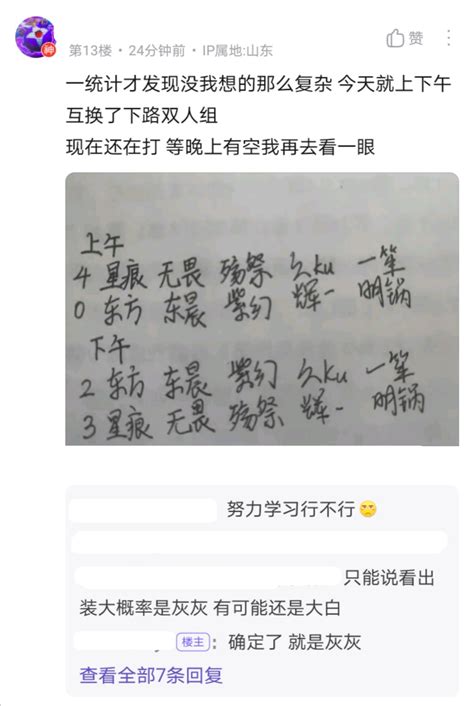 神
第13楼·24分钟前·IP属地:山东
赞
一统计才发现没我想的那么复杂 今天就上下午
互换了下路双人组
现在还在打 等晚上有空我再去看一眼
上午
4 星痕 无畏 殇祭 久ku 一笙
0 东方 东晨 紫幻 辉一 明锅
下午
2 东方 东晨 紫幻 久ku 一笙
3 星痕 无畏 殇祭 辉一 明锅
努力学习行不行🙄
只能说看出
装大概率是灰灰 有可能还是大白
楼主：确定了 就是灰灰
查看全部7条回复